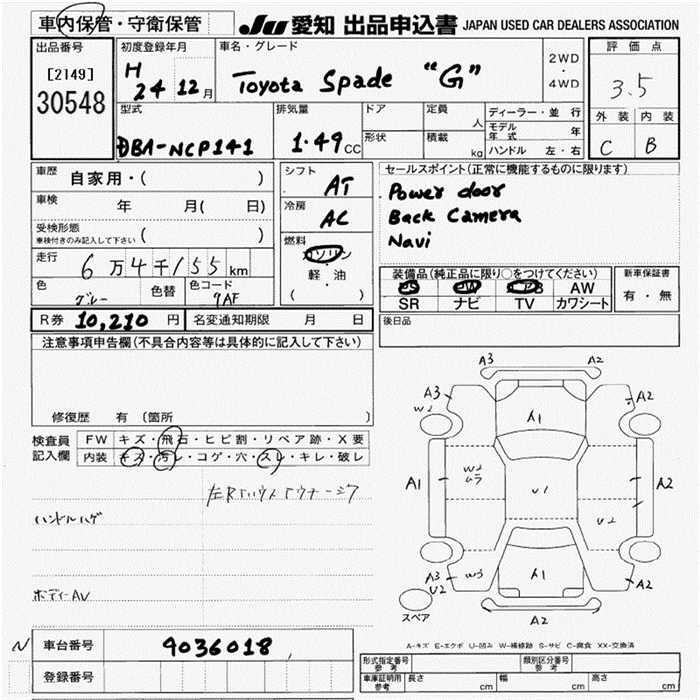 車内保管・守衛保管
JU 愛知 出品申込書 JAPAN USED CAR DEALERS ASSOCIATION
出品番号
[2149]
30548
初度登録年月
H
24 12月
車名・グレード
Toyota Spade "G"
2WD
・
4WD
評価点
3.5
外装 内装
C B
型式
DBA-NCP141
排気量
1.49 CC
ドア
形状
定員
人
積載
kg
ディーラー・並行
モデル年式 年
ハンドル 左・右
車歴 自家用・( )
車検 年 月( 日)
受検形態
車検付きのみ記入して下さい ( )
走行 6万4千155km
色 グレー 色替 色コード 9AF
シフト
AT
冷房
AC
燃料
ガソリン
軽・油
( )
セールスポイント(正常に機能するものに限ります)
Power door
Back Camera
Navi
装備品(純正品に限り○をつけてください)
PS PW AB AW
SR ナビ TV カワシート
新車保証書
有・無
R券 10,210円 名変通知期限 月 日
後日品
注意事項申告欄(不具合内容等は具体的に記入して下さい)
修復歴 有 〔箇所 〕
検査員
記入欄
FW キズ・飛石・ヒビ割・リペア跡・X要
内装 キズ・汚レ・コゲ・穴・スレ・キレ・破レ
ハンドルハゲ
ボディーAV
A3 A2
A3 W2 A1 A2
A1 W2 ムラ U1 U2 A2
A3 U2 W3 A1 A2
スペア
A2
A-キズ E-エクボ U-凹み W-補修跡 S-サビ C-腐食 XX-交換済
N 車台番号 9036018
登録番号
形式指定番号
参考
類別区分番号
参考
車庫証明用
参考
長さ cm 幅 cm 高さ cm